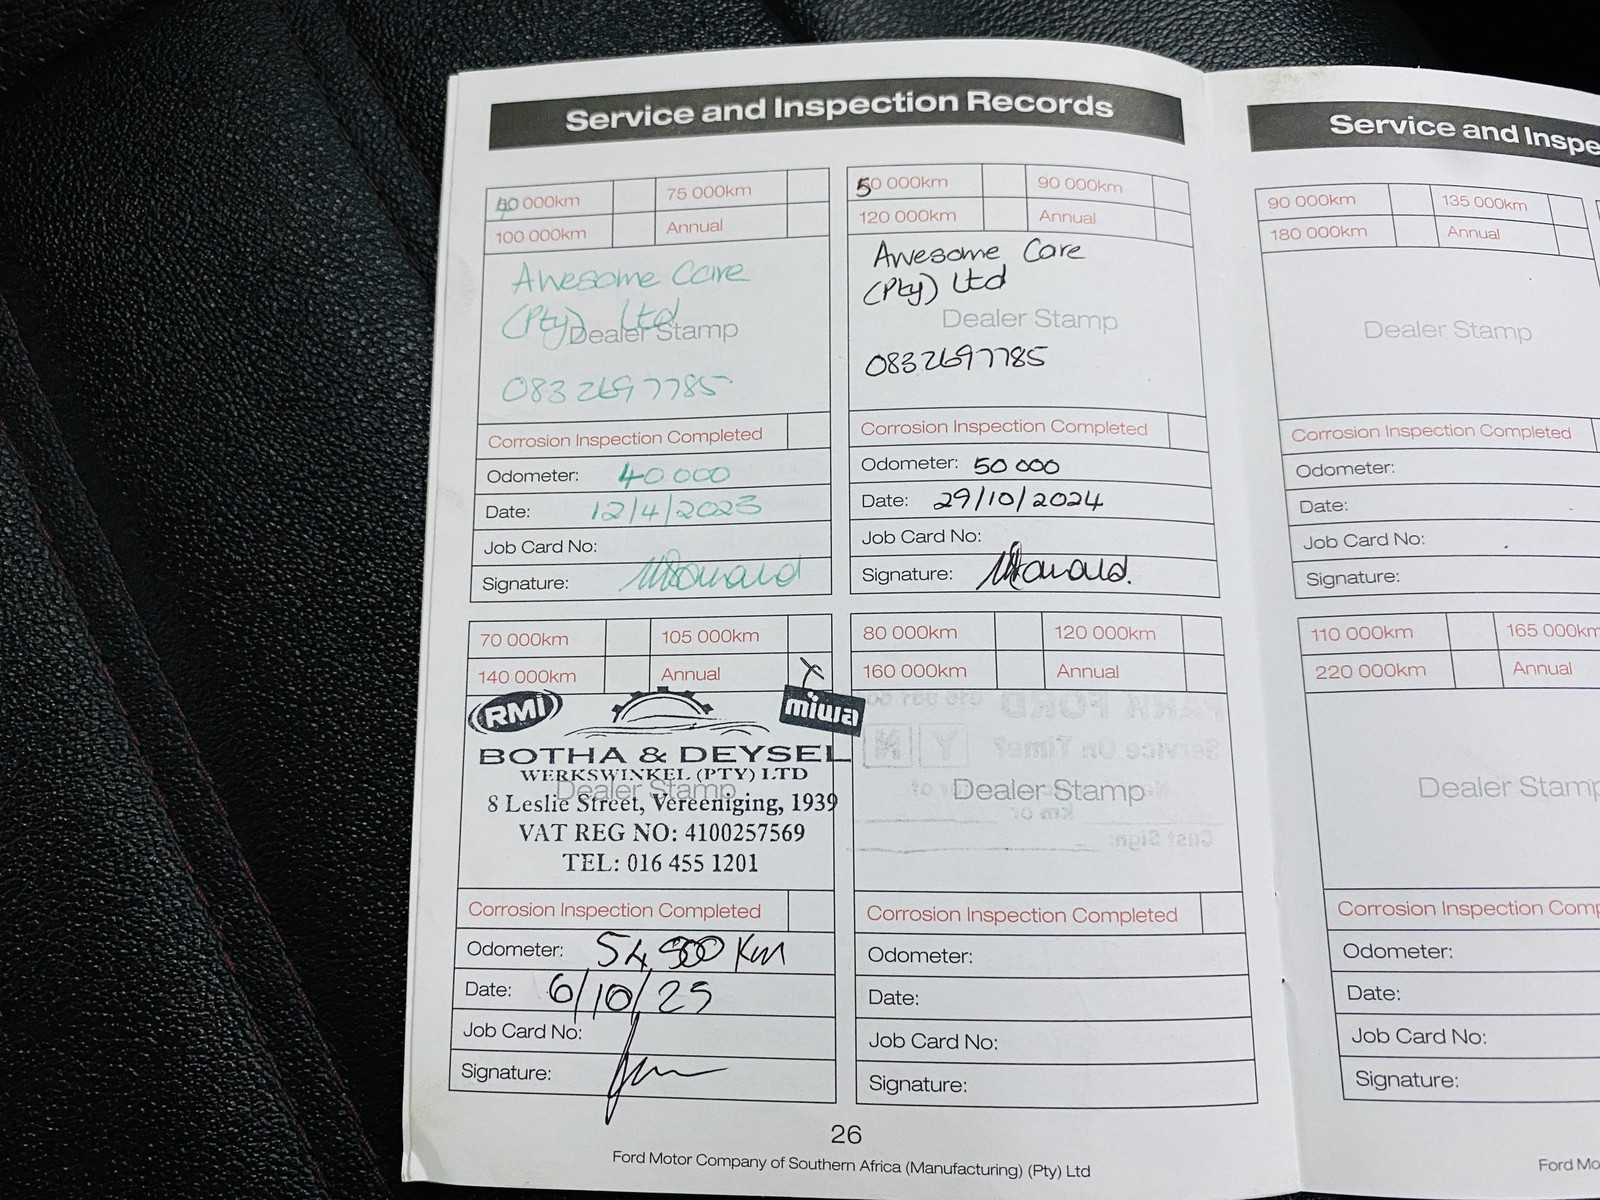 Service and Inspection Records
40 000km 75 000km
100 000km Annual
Awesome Care
(Pty) Ltd
Dealer Stamp
083 269 7785
Corrosion Inspection Completed
Odometer: 40 000
Date: 12/4/2023
Job Card No:
Signature:
50 000km 90 000km
120 000km Annual
Awesome Care
(Pty) Ltd
Dealer Stamp
083 269 7785
Corrosion Inspection Completed
Odometer: 50 000
Date: 29/10/2024
Job Card No:
Signature:
70 000km 105 000km
140 000km Annual X
RMI
miwa
BOTHA & DEYSEL
WERKSWINKEL (PTY) LTD
Dealer Stamp
8 Leslie Street, Vereeniging, 1939
VAT REG NO: 4100257569
TEL: 016 455 1201
Corrosion Inspection Completed
Odometer: 54 500 Km
Date: 6/10/25
Job Card No:
Signature:
80 000km 120 000km
160 000km Annual
Dealer Stamp
Corrosion Inspection Completed
Odometer:
Date:
Job Card No:
Signature:
26
Ford Motor Company of Southern Africa (Manufacturing) (Pty) Ltd
Service and Inspe
90 000km 135 000km
180 000km Annual
Dealer Stamp
Corrosion Inspection Completed
Odometer:
Date:
Job Card No:
Signature:
110 000km 165 000km
220 000km Annual
Dealer Stamp
Corrosion Inspection Comp
Odometer:
Date:
Job Card No:
Signature:
Ford Mo